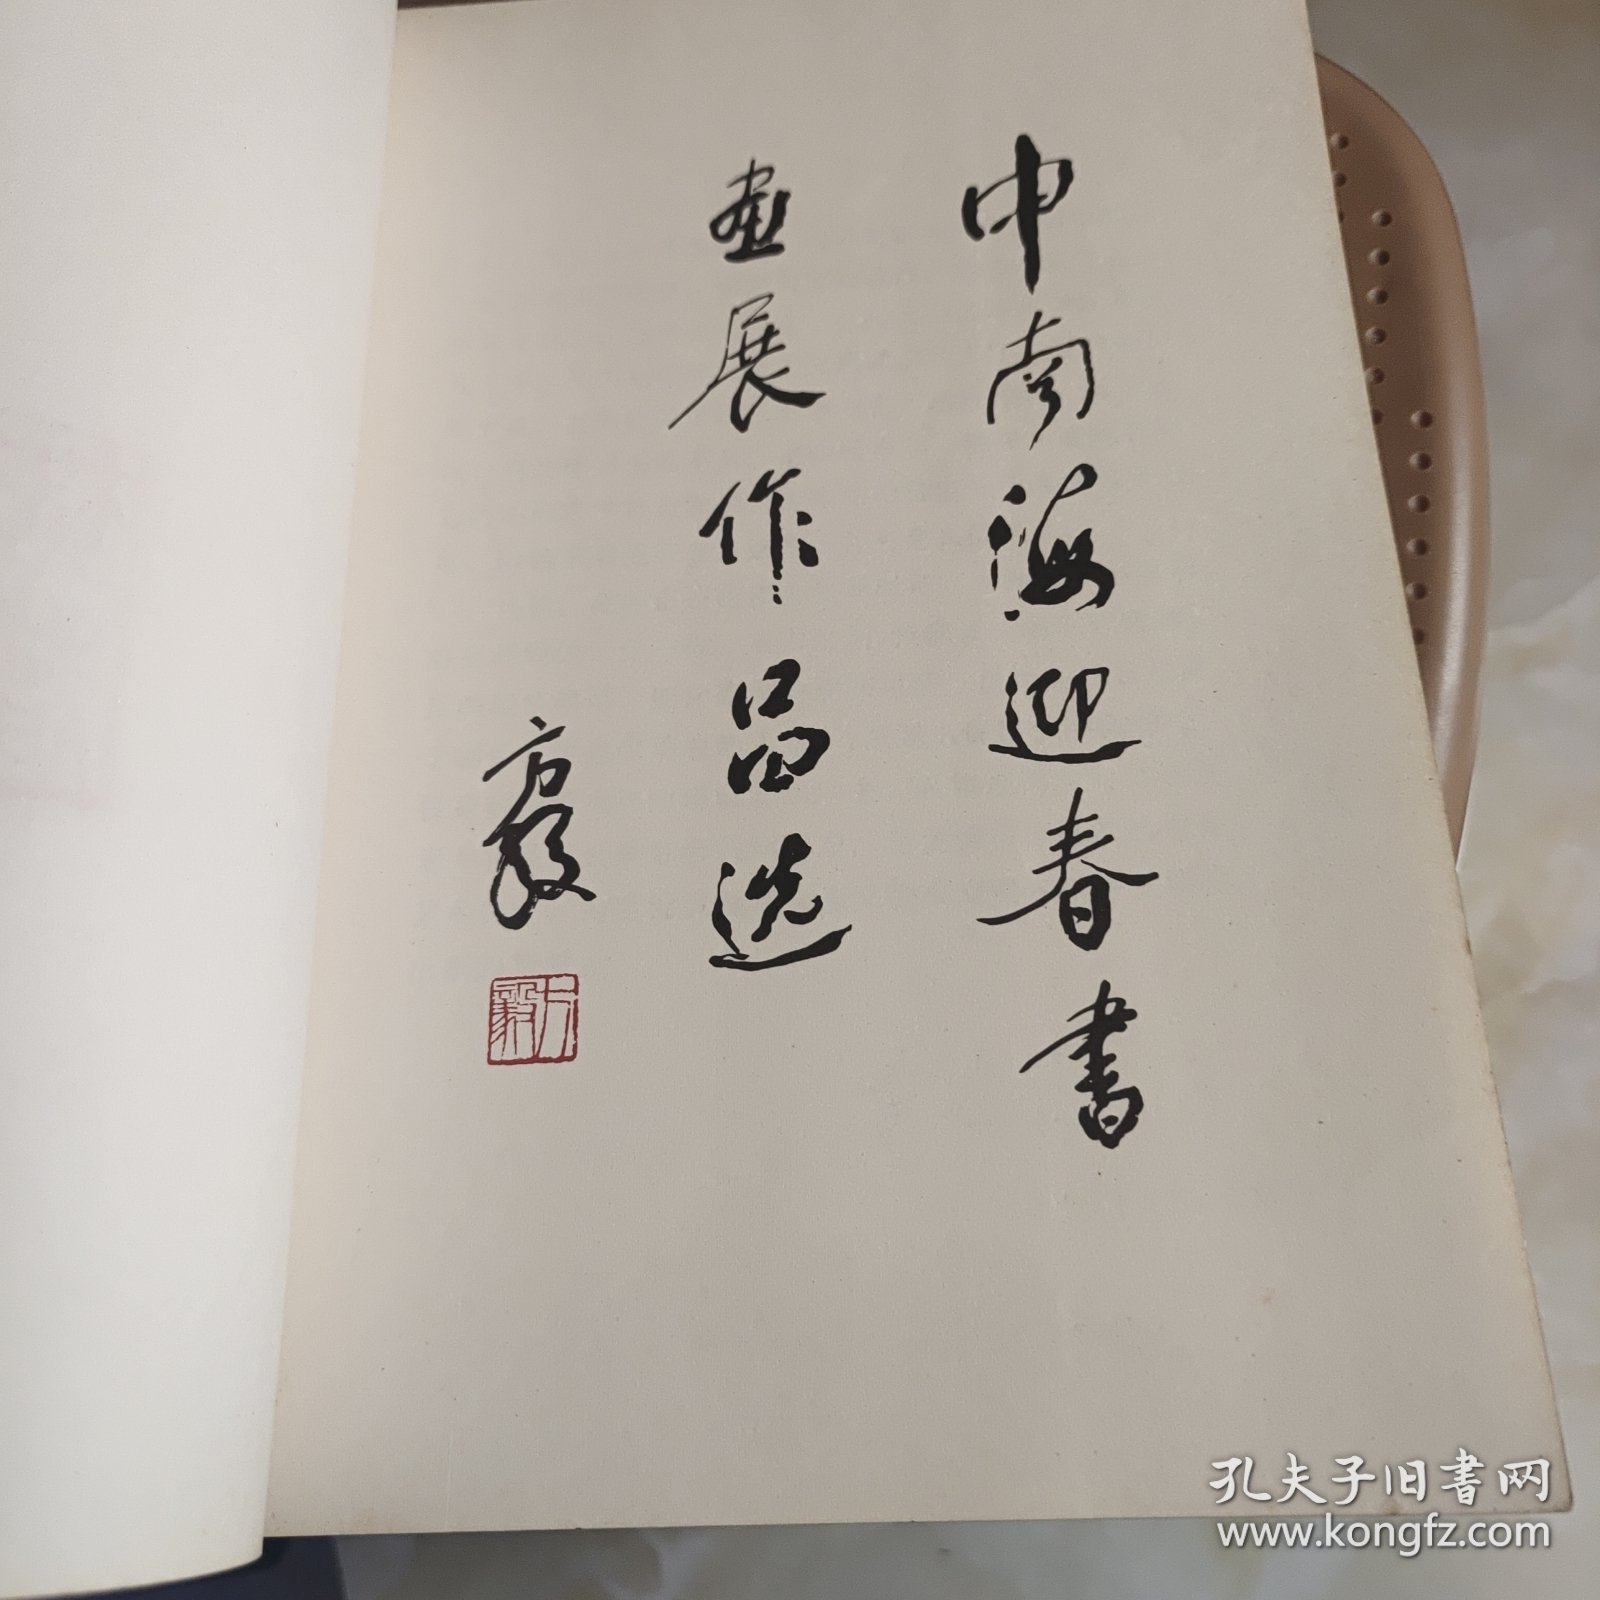 中南海迎春書
画展作品选
方毅
方毅
孔夫子旧书网
www.kongfz.com